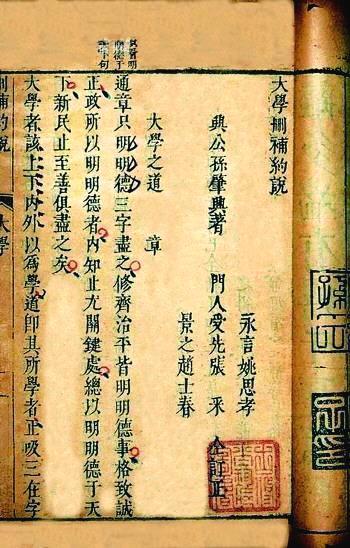 大學刪補約說
興公孫肇興著
永言姚思孝
門人受先張采
仝訂正
景之趙士春
大學之道 章
通章只明明德三字盡之修齊治平皆明明德事格致誠
正政所以明明德者內知止尤關鍵處總以明明德于天
下新民止至善俱盡之矣
大學者該上下內外以為學道即其所學者正吸三在字
刪補約說
大學